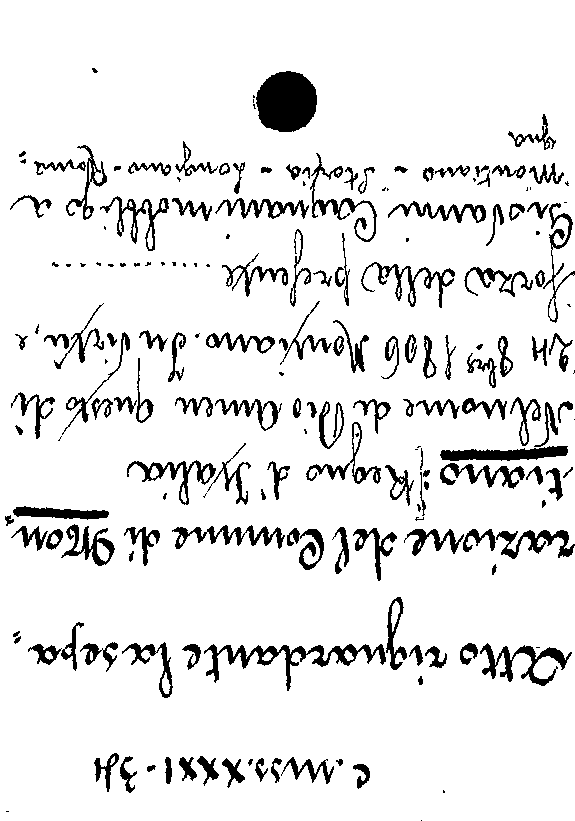 C. Miss. XXXI - 34
Atto riguardante la sepa=
razione del Comune di Mon=
tiano: "Regno d'Italia
Nel nome di Dio Amen questo dì
24 8brs 1806 Montiano. In virtù, e
forza della presente ..............
Giovanni Cagnani mobbligo a
"Montiano - Storia - Longiano - Roma=
gna